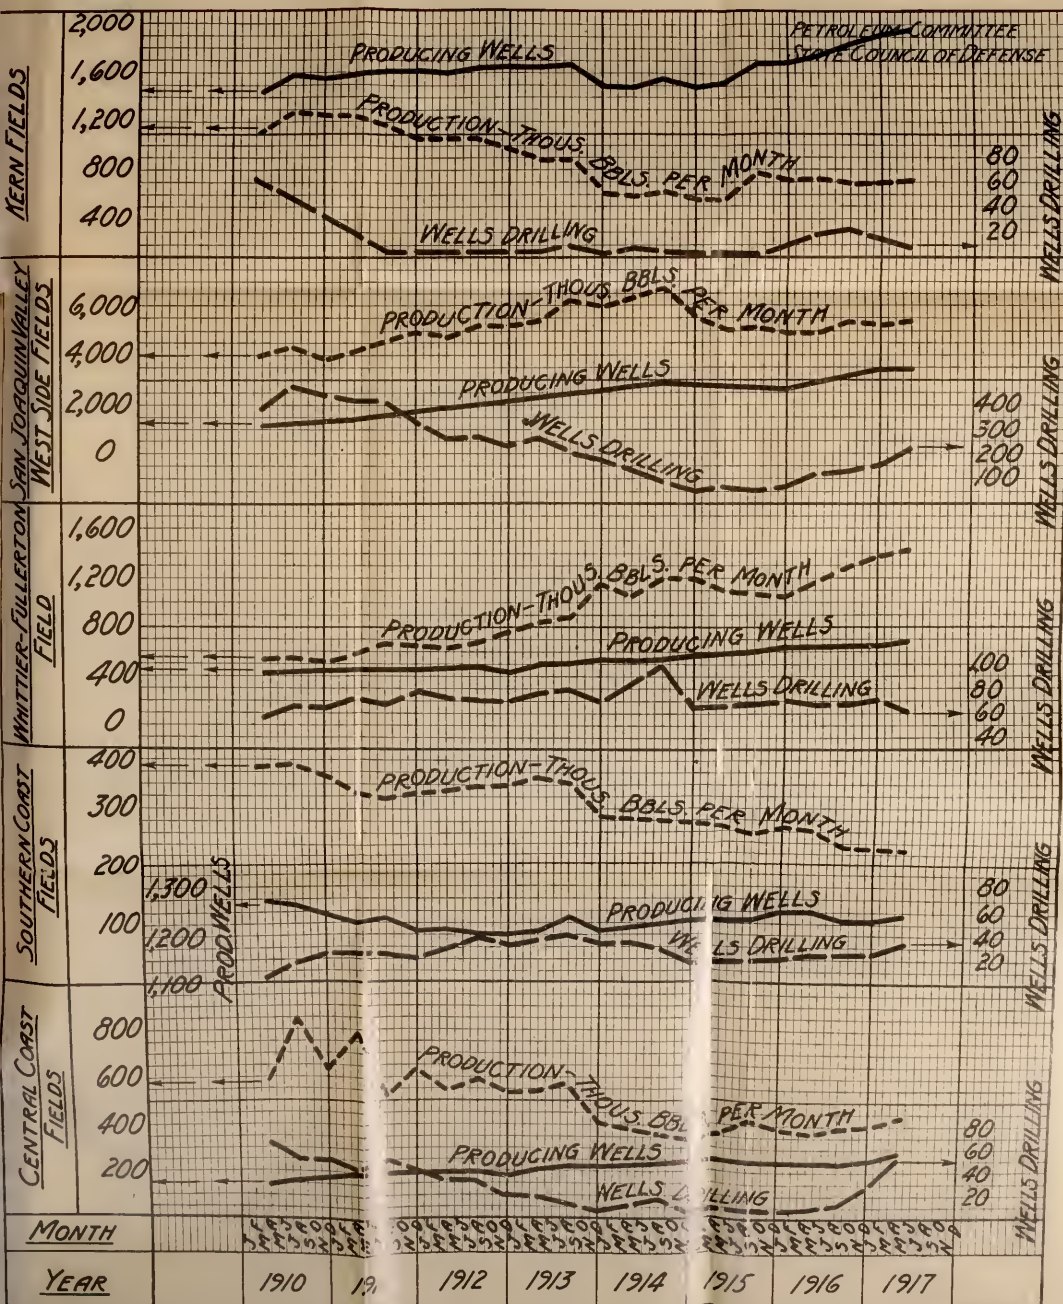 PETROLEUM COMMITTEE
STATE COUNCIL OF DEFENSE
KERN FIELDS
2,000
1,600
1,200
800
400
PRODUCING WELLS
PRODUCTION-THOUS. BBLS. PER MONTH
WELLS DRILLING
80
60
40
20
WELLS DRILLING
SAN JOAQUIN VALLEY
WEST SIDE FIELDS
6,000
4,000
2,000
0
PRODUCTION-THOUS. BBLS. PER MONTH
PRODUCING WELLS
WELLS DRILLING
400
300
200
100
WELLS DRILLING
WHITTIER-FULLERTON
FIELD
1,600
1,200
800
400
0
PRODUCTION-THOUS. BBLS. PER MONTH
PRODUCING WELLS
WELLS DRILLING
100
80
60
40
WELLS DRILLING
SOUTHERN COAST
FIELDS
400
300
200
100
1,300
1,200
1,100
PROD. WELLS
PRODUCTION-THOUS. BBLS. PER MONTH
PRODUCING WELLS
WELLS DRILLING
80
60
40
20
WELLS DRILLING
CENTRAL COAST
FIELDS
800
600
400
200
PRODUCTION-THOUS. BBLS. PER MONTH
PRODUCING WELLS
WELLS DRILLING
80
60
40
20
WELLS DRILLING
MONTH
YEAR
1910 19 1912 1913 1914 1915 1916 1917